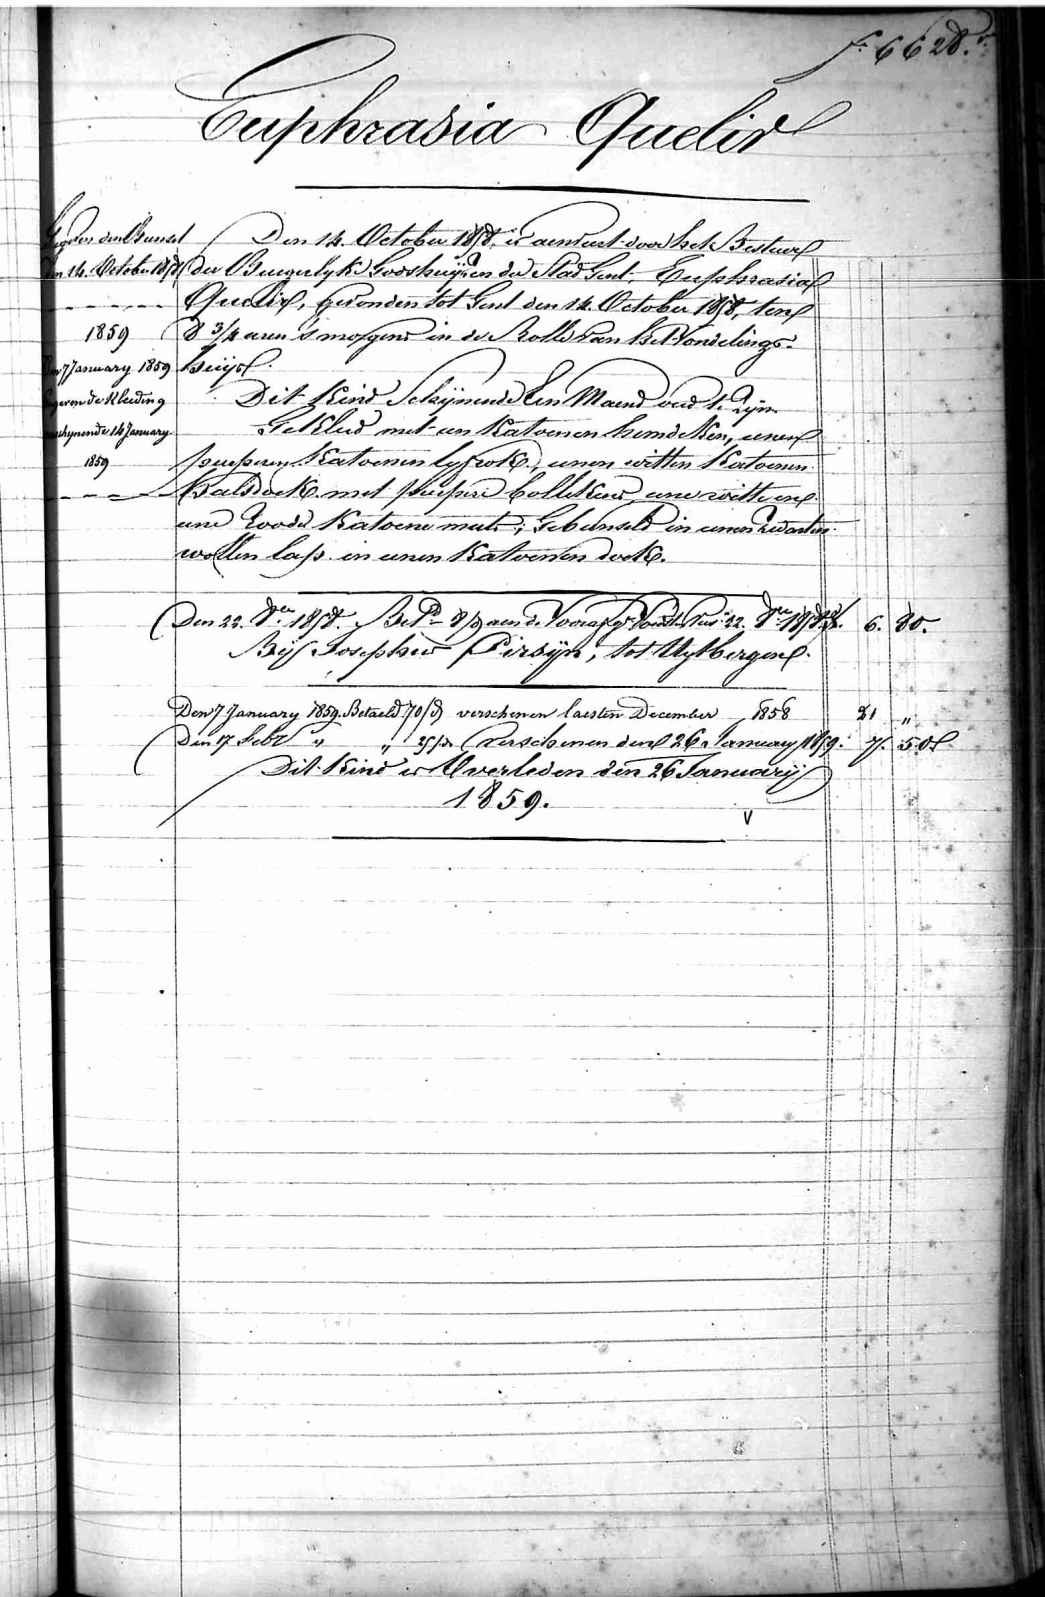 f. 6628.
Euphrasia Quelir
Gegeven den Bunsel
den 14. October 1858
1859
den 7 January 1859
gegeven de Kleeding
verschynende 14 January
1859
Den 14. October 1858, is aenveird door het Bestuer
der Burgerlyke Godshuyzen der Stad Gent, Euphrasia
Quelir, gevonden tot Gent den 14. October 1858, ten
8 3/4 uren 's morgens in de Rolle van het Vondelings-
huys.
Dit Kind Schynende Een Maend oud te Zyn
Gekleed met een Katoenen hemdeken, eenen
purperen Katoenen lyfrok, eenen witten Katoenen
Halsdoek met purpere bollekens, eene witte en
eene Roode Katoene muts; Gebunseld in eenen Zwarten
wollen lap in eenen Katoenen doek.
Den 22. 8er 1858. Bet. aen de 22. 8er 1858 6. 80.
Bij Josephus Pirsijn, tot Uytbergen.
Den 7 January 1859. Betaeld 70/d verschenen laesten December 1858 21 "
Den 17 Febr " " 25/d verschenen den 26 January 1859. 7. 50
Dit Kind is Overleden den 26 January
1859.
V